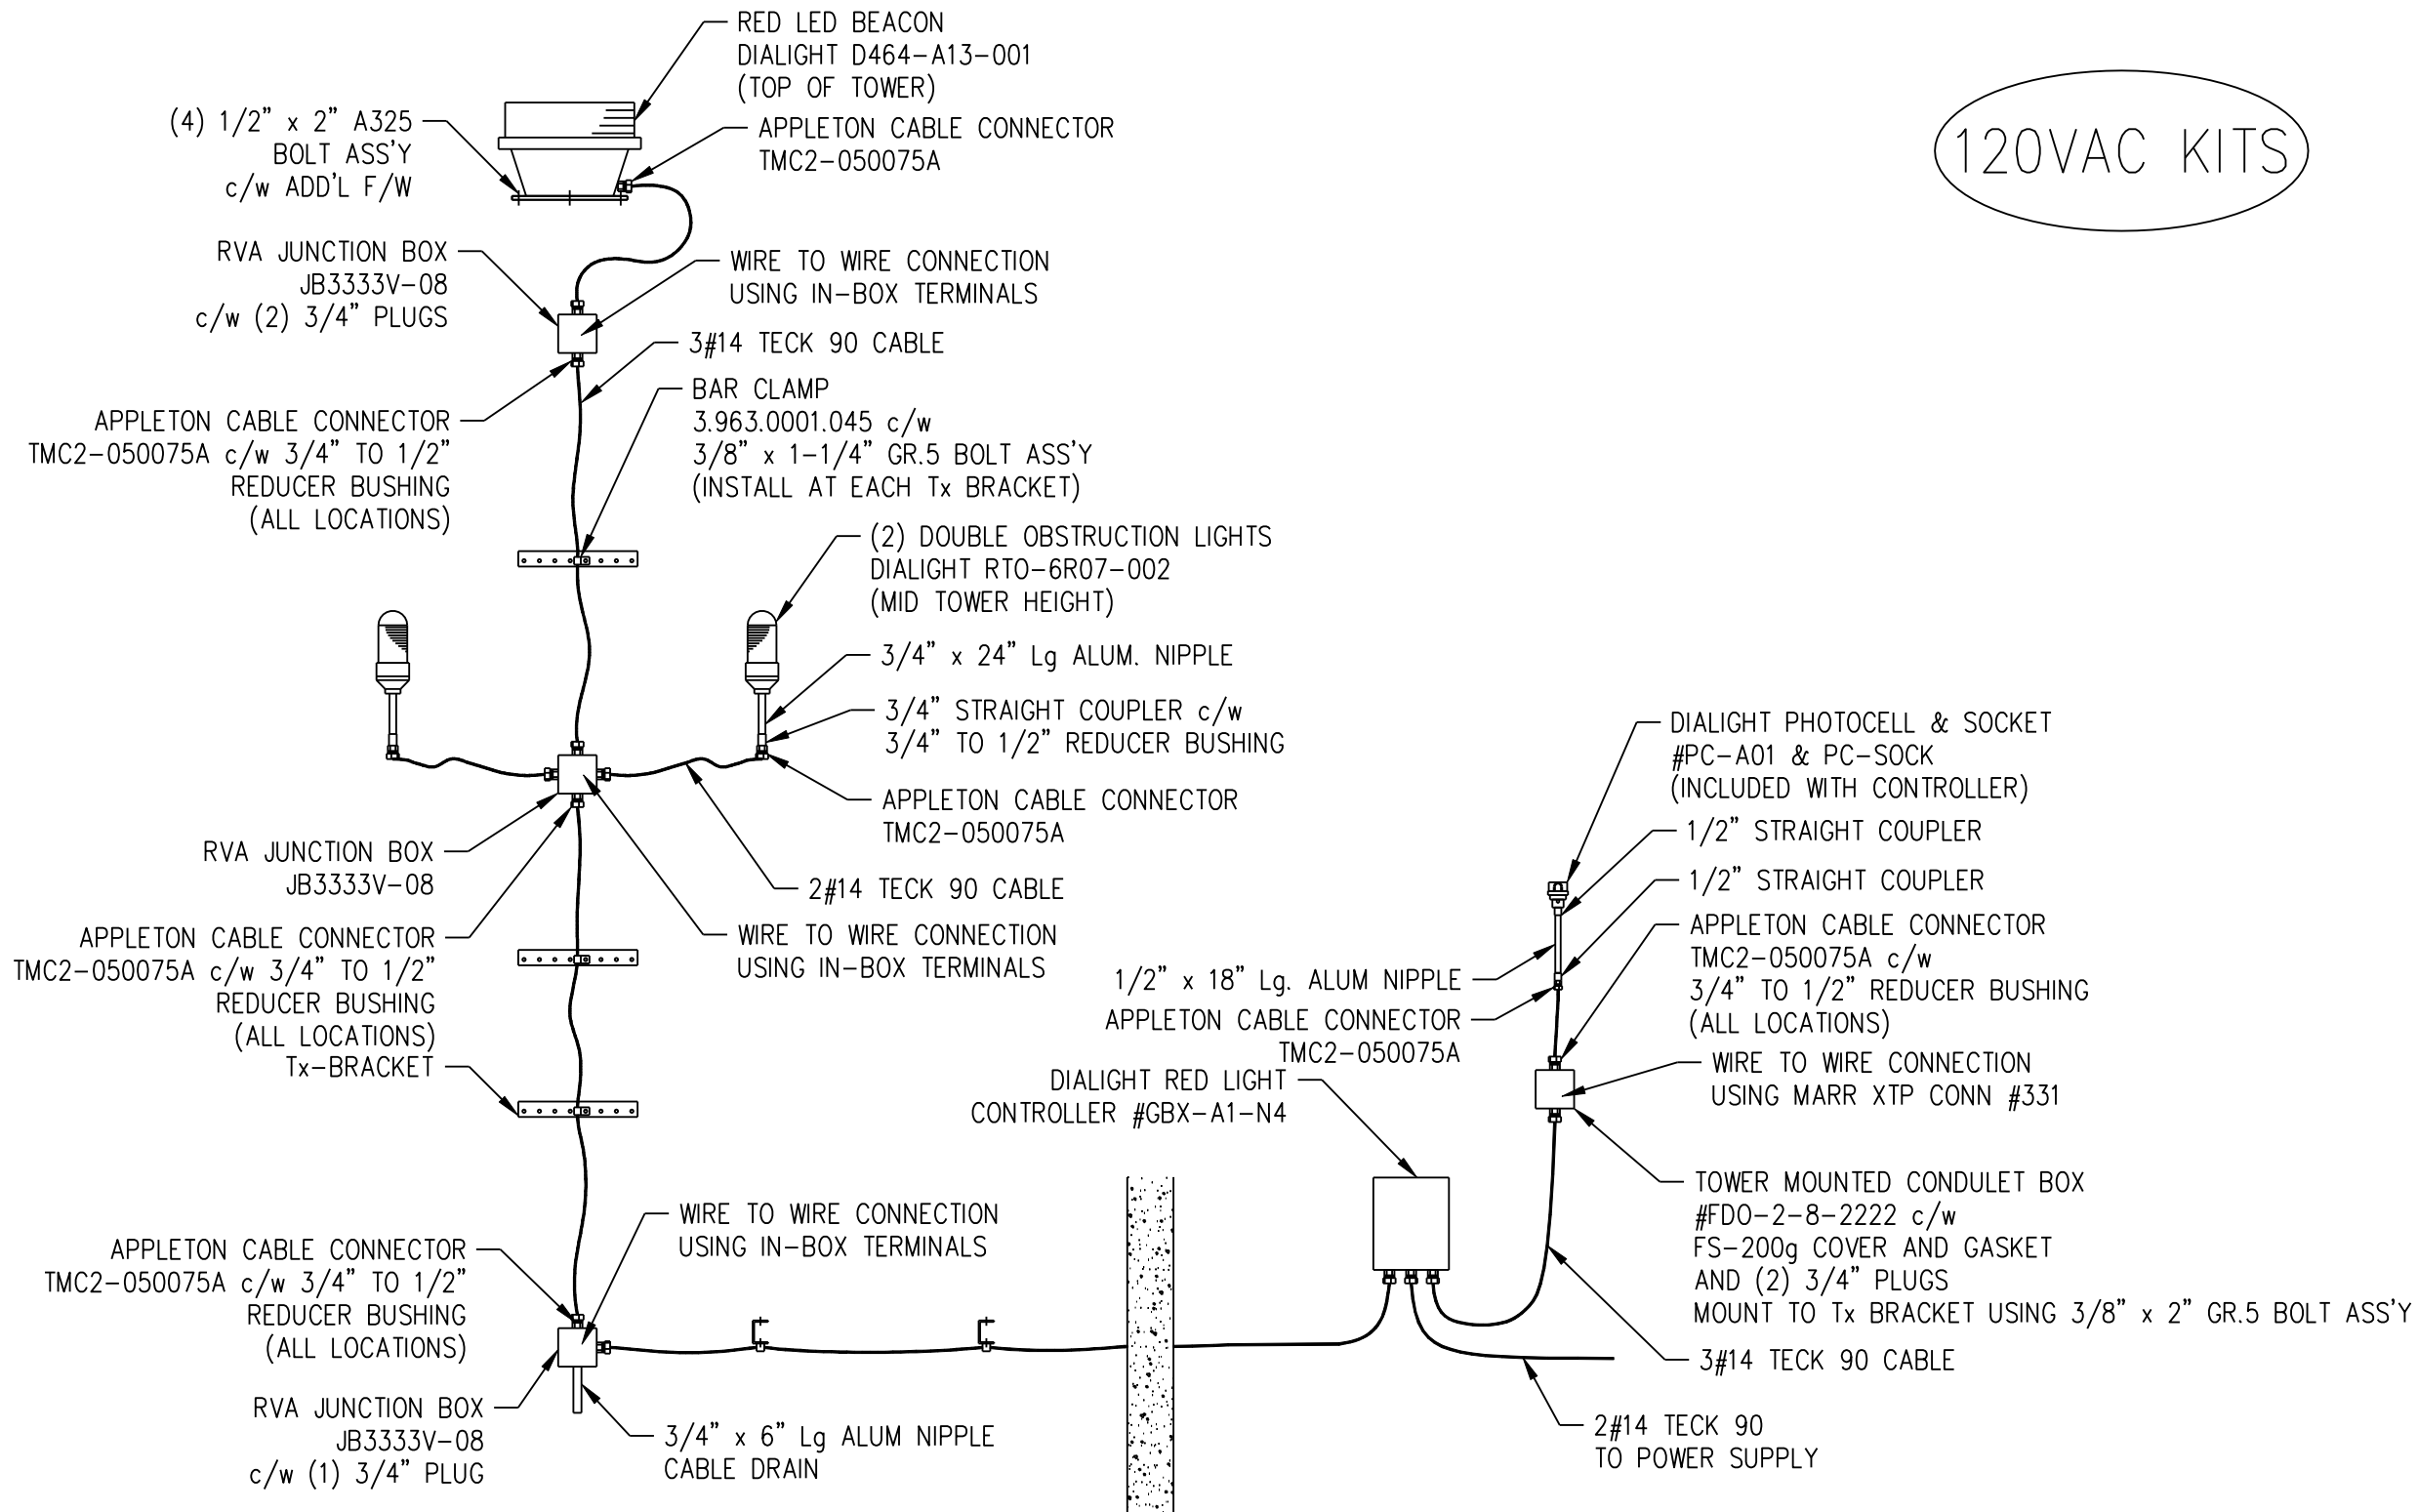 RED LED BEACON
DIALIGHT D464-A13-001
(TOP OF TOWER)
120VAC KITS
(4) 1/2" x 2" A325
BOLT ASS'Y
c/w ADD'L F/W
APPLETON CABLE CONNECTOR
TMC2-050075A
RVA JUNCTION BOX
JB3333V-08
c/w (2) 3/4" PLUGS
WIRE TO WIRE CONNECTION
USING IN-BOX TERMINALS
3#14 TECK 90 CABLE
BAR CLAMP
3.963.0001.045 c/w
3/8" x 1-1/4" GR.5 BOLT ASS'Y
(INSTALL AT EACH Tx BRACKET)
APPLETON CABLE CONNECTOR
TMC2-050075A c/w 3/4" TO 1/2"
REDUCER BUSHING
(ALL LOCATIONS)
(2) DOUBLE OBSTRUCTION LIGHTS
DIALIGHT RTO-6R07-002
(MID TOWER HEIGHT)
3/4" x 24" Lg ALUM. NIPPLE
3/4" STRAIGHT COUPLER c/w
3/4" TO 1/2" REDUCER BUSHING
APPLETON CABLE CONNECTOR
TMC2-050075A
RVA JUNCTION BOX
JB3333V-08
2#14 TECK 90 CABLE
APPLETON CABLE CONNECTOR
TMC2-050075A c/w 3/4" TO 1/2"
REDUCER BUSHING
(ALL LOCATIONS)
WIRE TO WIRE CONNECTION
USING IN-BOX TERMINALS
Tx-BRACKET
DIALIGHT PHOTOCELL & SOCKET
#PC-A01 & PC-SOCK
(INCLUDED WITH CONTROLLER)
1/2" STRAIGHT COUPLER
1/2" STRAIGHT COUPLER
APPLETON CABLE CONNECTOR
TMC2-050075A c/w
3/4" TO 1/2" REDUCER BUSHING
(ALL LOCATIONS)
1/2" x 18" Lg. ALUM NIPPLE
APPLETON CABLE CONNECTOR
TMC2-050075A
WIRE TO WIRE CONNECTION
USING MARR XTP CONN #331
DIALIGHT RED LIGHT
CONTROLLER #GBX-A1-N4
TOWER MOUNTED CONDULET BOX
#FDO-2-8-2222 c/w
FS-200g COVER AND GASKET
AND (2) 3/4" PLUGS
MOUNT TO Tx BRACKET USING 3/8" x 2" GR.5 BOLT ASS'Y
3#14 TECK 90 CABLE
2#14 TECK 90
TO POWER SUPPLY
WIRE TO WIRE CONNECTION
USING IN-BOX TERMINALS
APPLETON CABLE CONNECTOR
TMC2-050075A c/w 3/4" TO 1/2"
REDUCER BUSHING
(ALL LOCATIONS)
RVA JUNCTION BOX
JB3333V-08
c/w (1) 3/4" PLUG
3/4" x 6" Lg ALUM NIPPLE
CABLE DRAIN